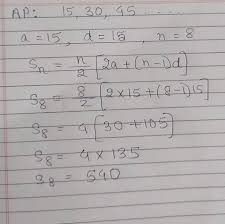 AP: 15, 30, 45 ........
a = 15, d = 15, n = 8
Sn = n/2 [2a + (n-1)d]
S8 = 8/2 [2×15 + (8-1)15]
S8 = 4 [30 + 105]
S8 = 4 × 135
S8 = 540